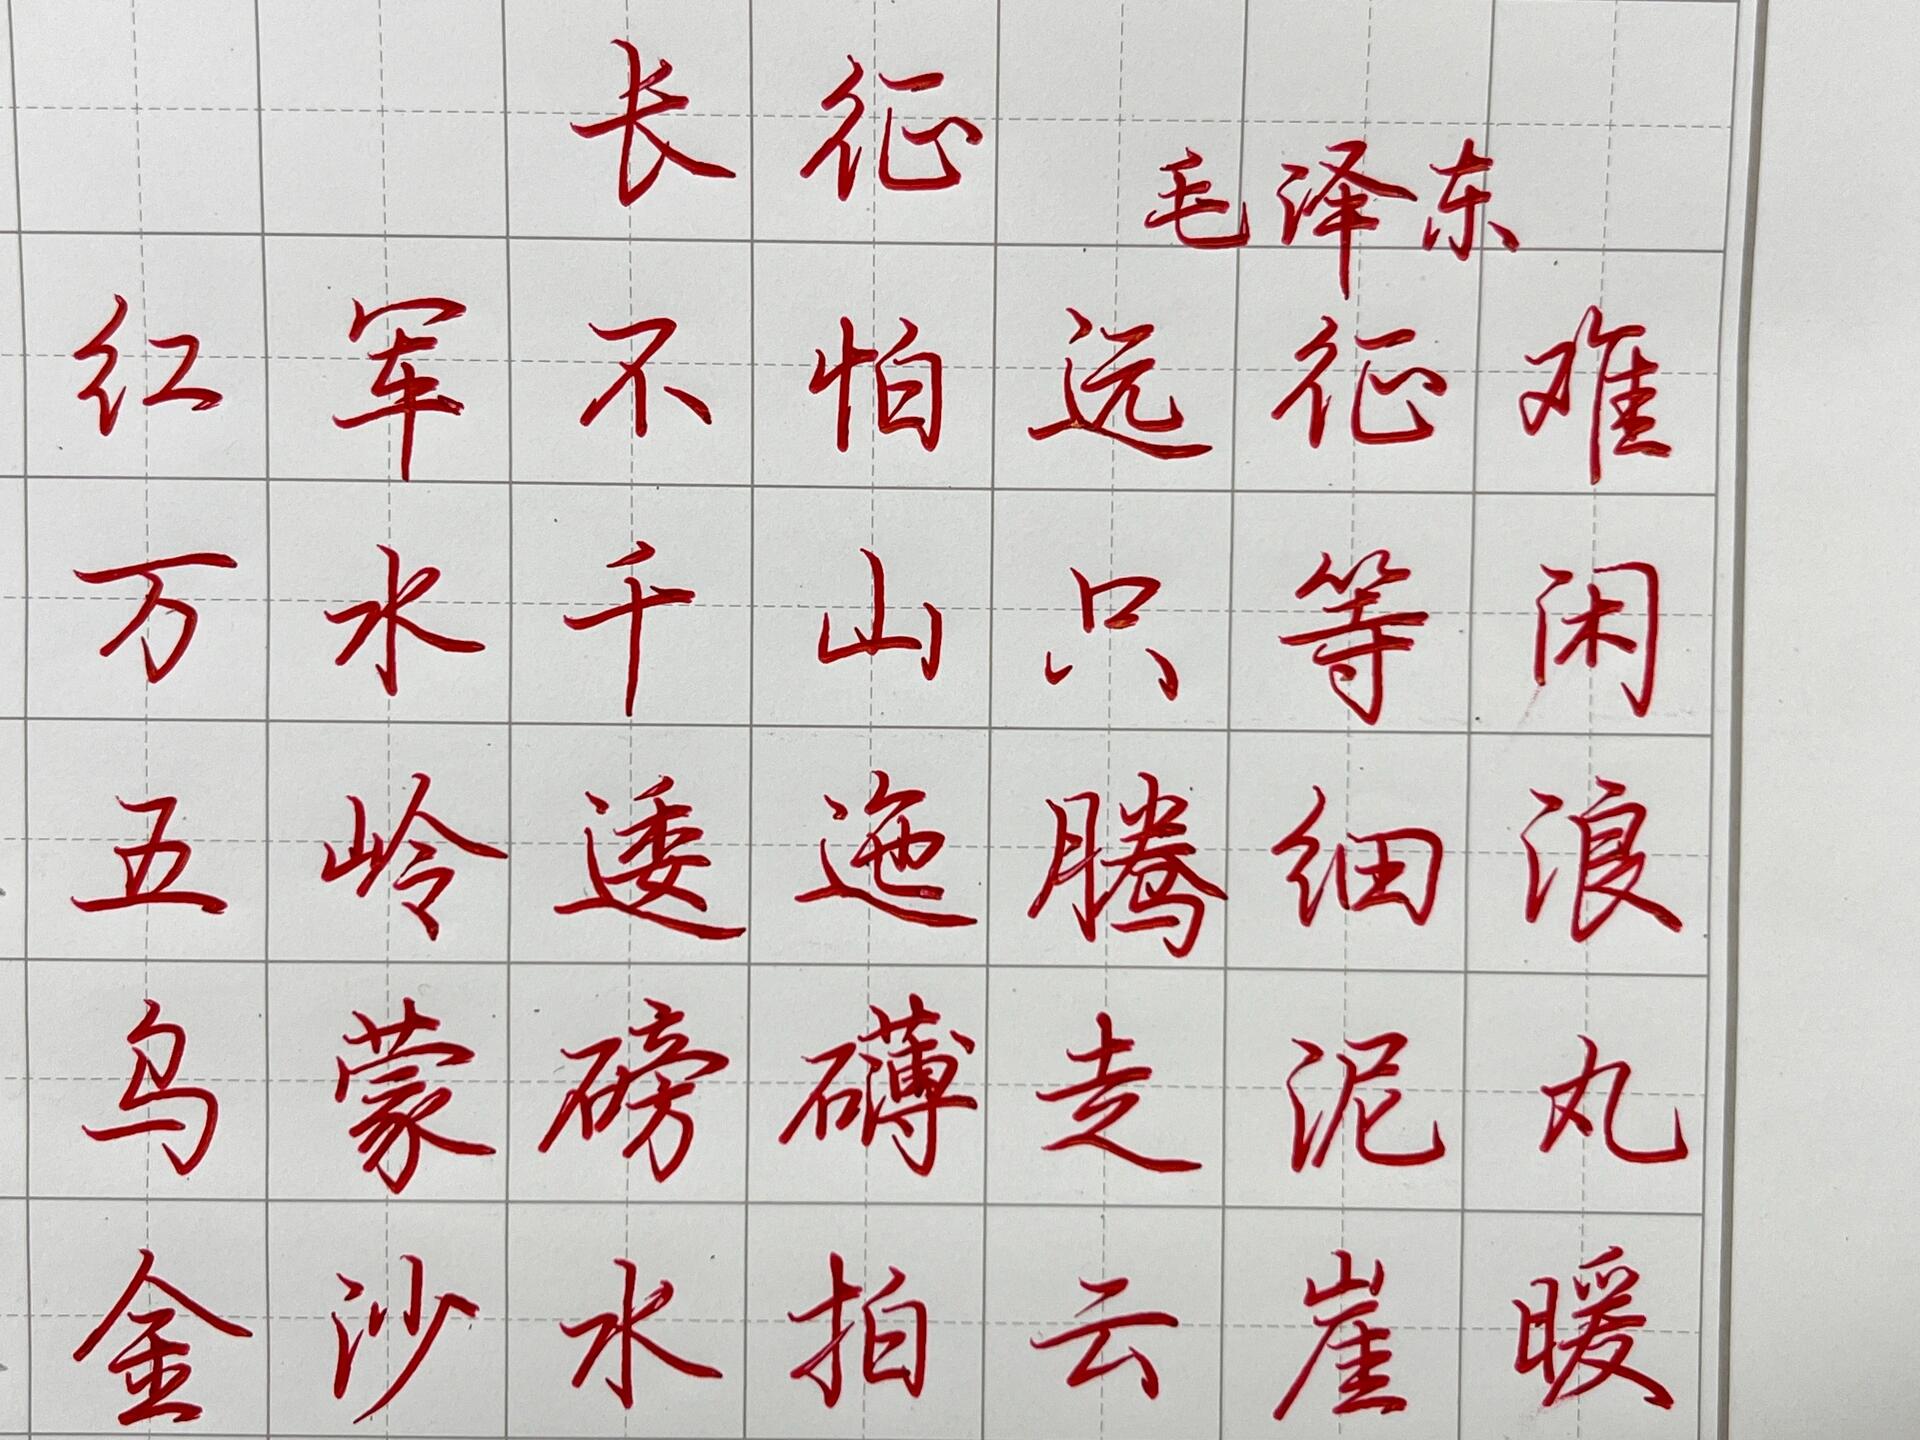 长征
毛泽东
红军不怕远征难
万水千山只等闲
五岭逶迤腾细浪
乌蒙磅礴走泥丸
金沙水拍云崖暖